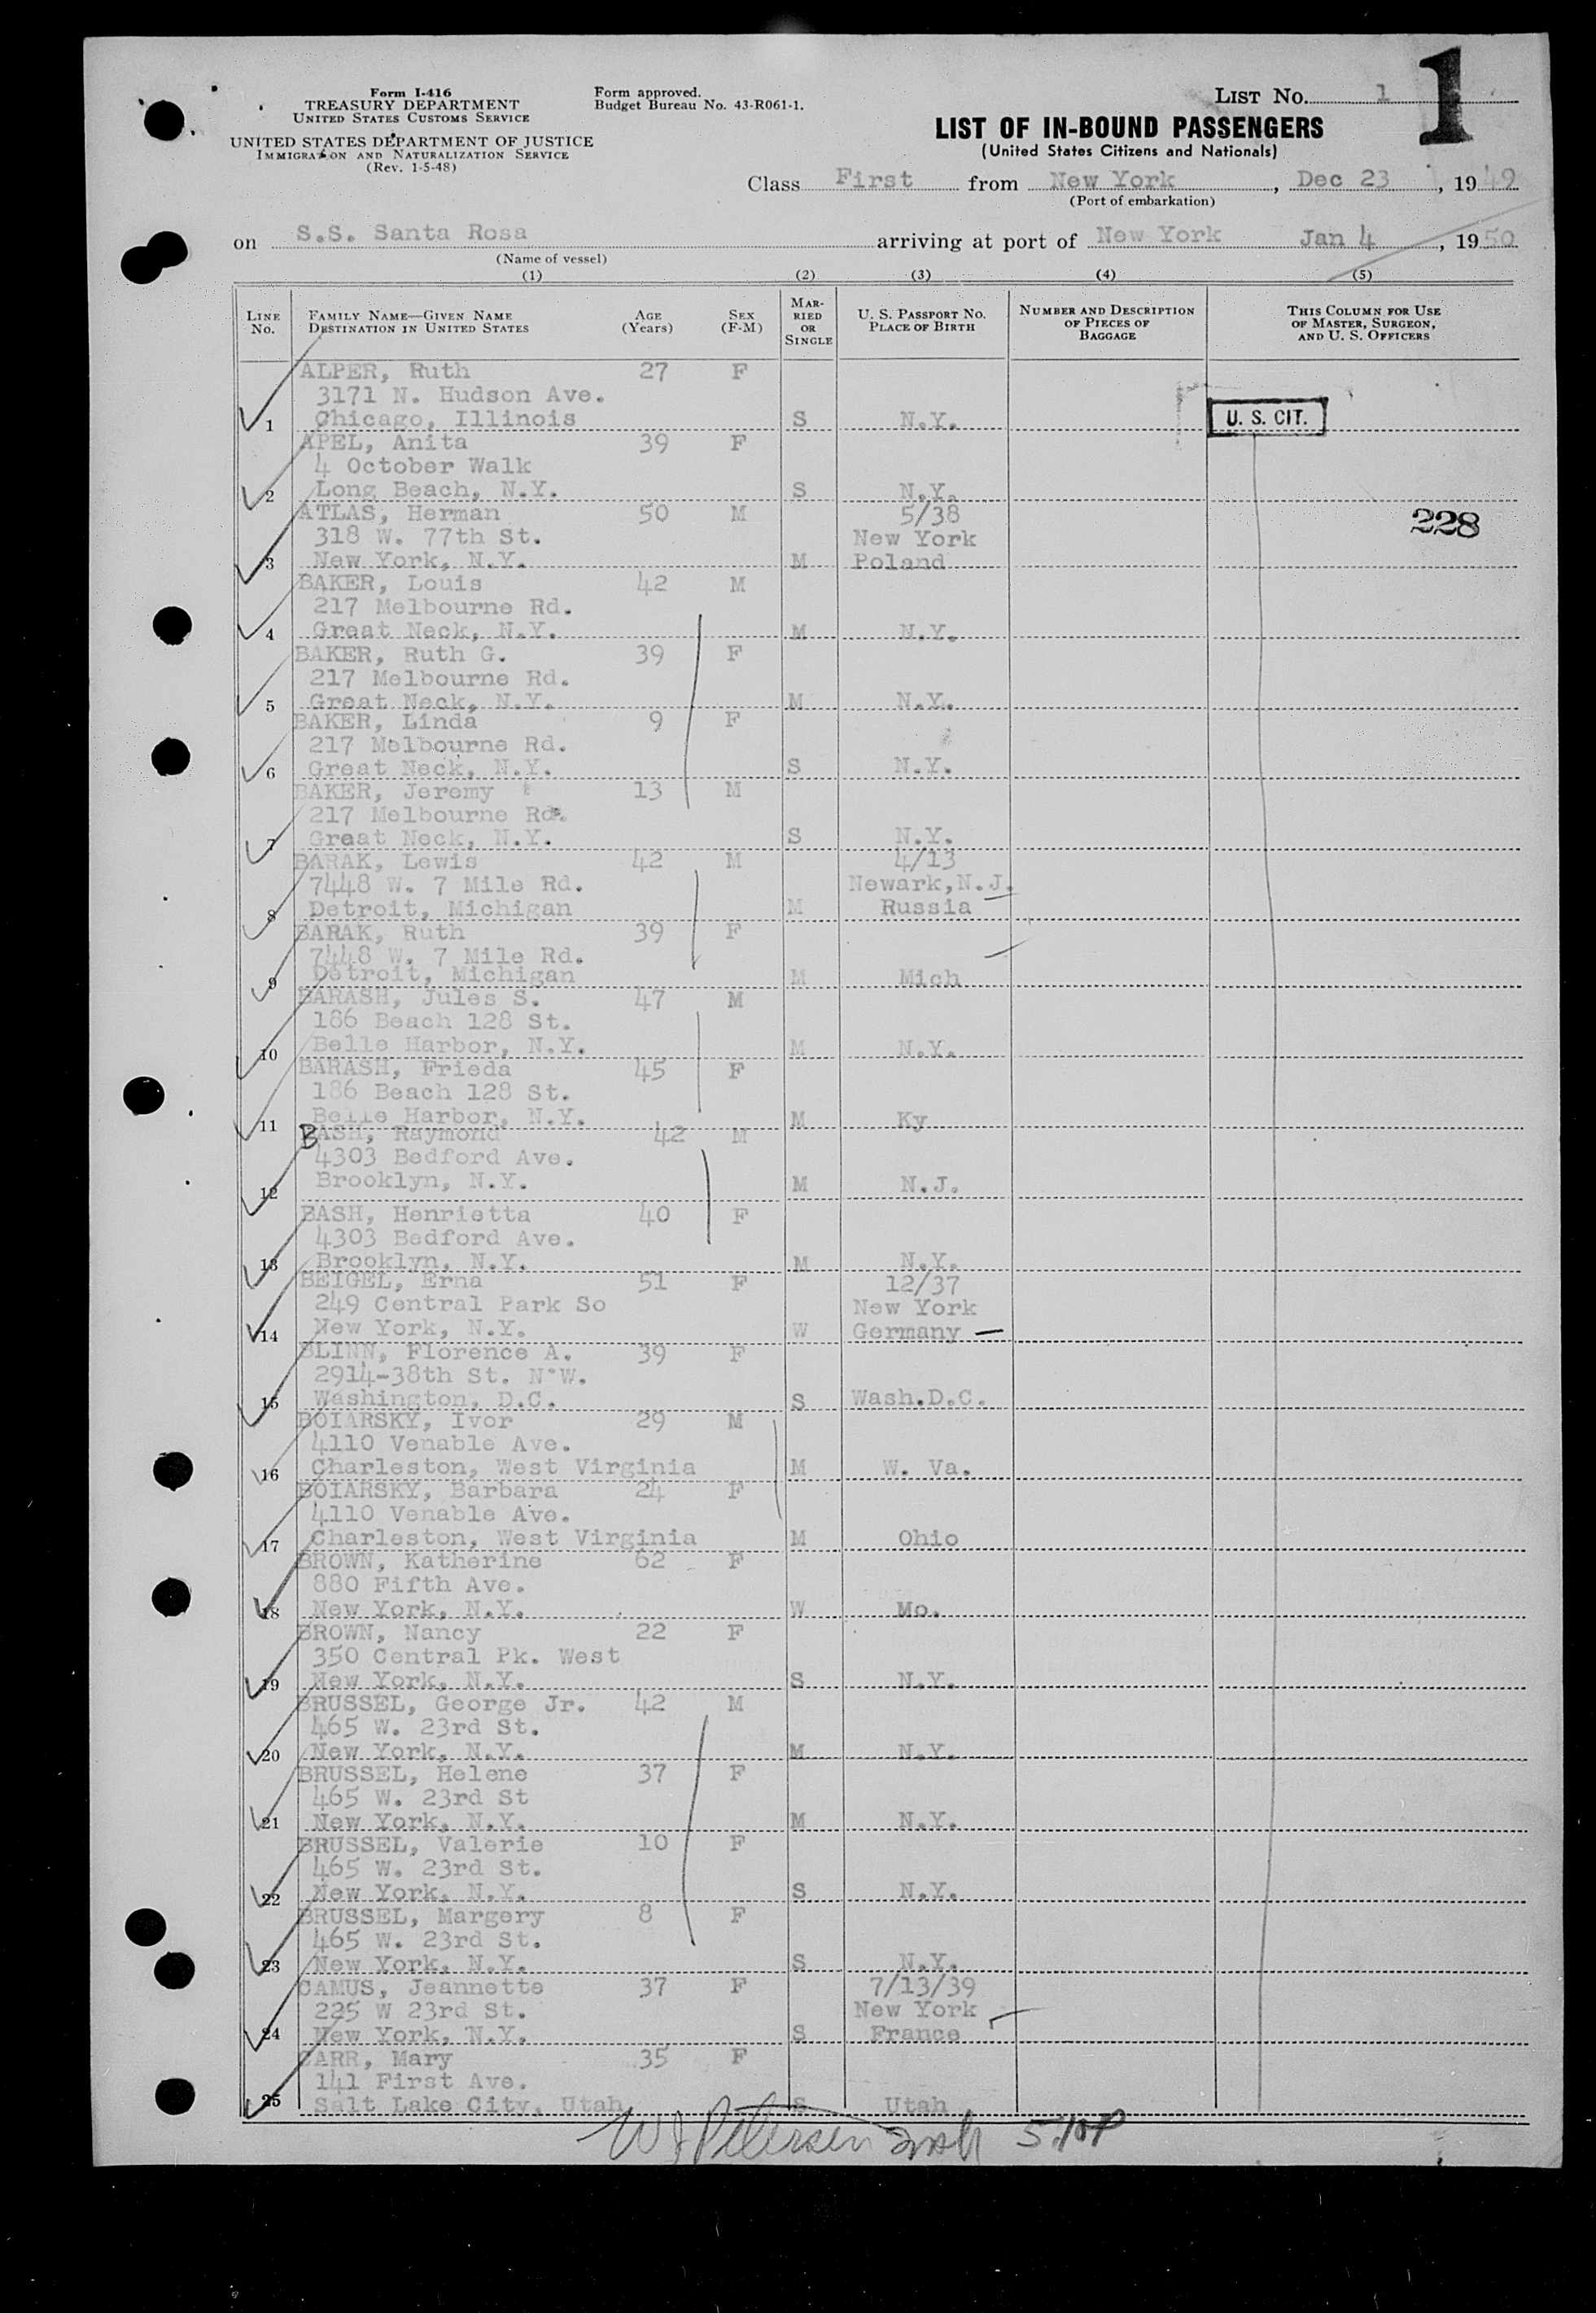 Form I-416
TREASURY DEPARTMENT
UNITED STATES CUSTOMS SERVICE
UNITED STATES DEPARTMENT OF JUSTICE
IMMIGRATION AND NATURALIZATION SERVICE
(Rev. 1-5-48)
Form approved.
Budget Bureau No. 43-R061-1.
LIST No. 1
1
LIST OF IN-BOUND PASSENGERS
(United States Citizens and Nationals)
Class First from New York, Dec 23, 1949
(Port of embarkation)
on S.S. Santa Rosa arriving at port of New York Jan 4, 1950
(Name of vessel)
(1) (2) (3) (4) (5)
LINE No. FAMILY NAME—GIVEN NAME DESTINATION IN UNITED STATES AGE (Years) SEX (F-M) MARRIED OR SINGLE U. S. PASSPORT NO. PLACE OF BIRTH NUMBER AND DESCRIPTION OF PIECES OF BAGGAGE THIS COLUMN FOR USE OF MASTER, SURGEON, AND U. S. OFFICERS
ALPER, Ruth 27 F
3171 N. Hudson Ave.
1 Chicago, Illinois S N.Y. U. S. CIT.
APEL, Anita 39 F
4 October Walk
2 Long Beach, N.Y. S N.Y.
ATLAS, Herman 50 M 5/38 228
318 W. 77th St. New York
3 New York, N.Y. M Poland
BAKER, Louis 42 M
217 Melbourne Rd.
4 Great Neck, N.Y. M N.Y.
BAKER, Ruth G. 39 F
217 Melbourne Rd.
5 Great Neck, N.Y. M N.Y.
BAKER, Linda 9 F
217 Melbourne Rd.
6 Great Neck, N.Y. S N.Y.
BAKER, Jeremy 13 M
217 Melbourne Rd.
7 Great Neck, N.Y. S N.Y.
BARAK, Lewis 42 M 4/13
7448 W. 7 Mile Rd. Newark, N.J.
8 Detroit, Michigan M Russia
BARAK, Ruth 39 F
7448 W. 7 Mile Rd.
9 Detroit, Michigan M Mich
BARASH, Jules S. 47 M
186 Beach 128 St.
10 Belle Harbor, N.Y. M N.Y.
BARASH, Frieda 45 F
186 Beach 128 St.
11 Belle Harbor, N.Y. M Ky
BASH, Raymond 42 M
4303 Bedford Ave.
12 Brooklyn, N.Y. M N.J.
BASH, Henrietta 40 F
4303 Bedford Ave.
13 Brooklyn, N.Y. M N.Y.
BEIGEL, Erna 51 F 12/37
249 Central Park So New York
14 New York, N.Y. W Germany
BLINN, Florence A. 39 F
2914-38th St. N.W.
15 Washington, D.C. S Wash.D.C.
BOIARSKY, Ivor 29 M
4110 Venable Ave.
16 Charleston, West Virginia M W. Va.
BOIARSKY, Barbara 24 F
4110 Venable Ave.
17 Charleston, West Virginia M Ohio
BROWN, Katherine 62 F
880 Fifth Ave.
18 New York, N.Y. W Mo.
BROWN, Nancy 22 F
350 Central Pk. West
19 New York, N.Y. S N.Y.
BRUSSEL, George Jr. 42 M
465 W. 23rd St.
20 New York, N.Y. M N.Y.
BRUSSEL, Helene 37 F
465 W. 23rd St
21 New York, N.Y. M N.Y.
BRUSSEL, Valerie 10 F
465 W. 23rd St.
22 New York, N.Y. S N.Y.
BRUSSEL, Margery 8 F
465 W. 23rd St.
23 New York, N.Y. S N.Y.
CAMUS, Jeannette 37 F 7/13/39
225 W 23rd St. New York
24 New York, N.Y. S France
CARR, Mary 35 F
141 First Ave.
25 Salt Lake City, Utah S Utah
Petersen